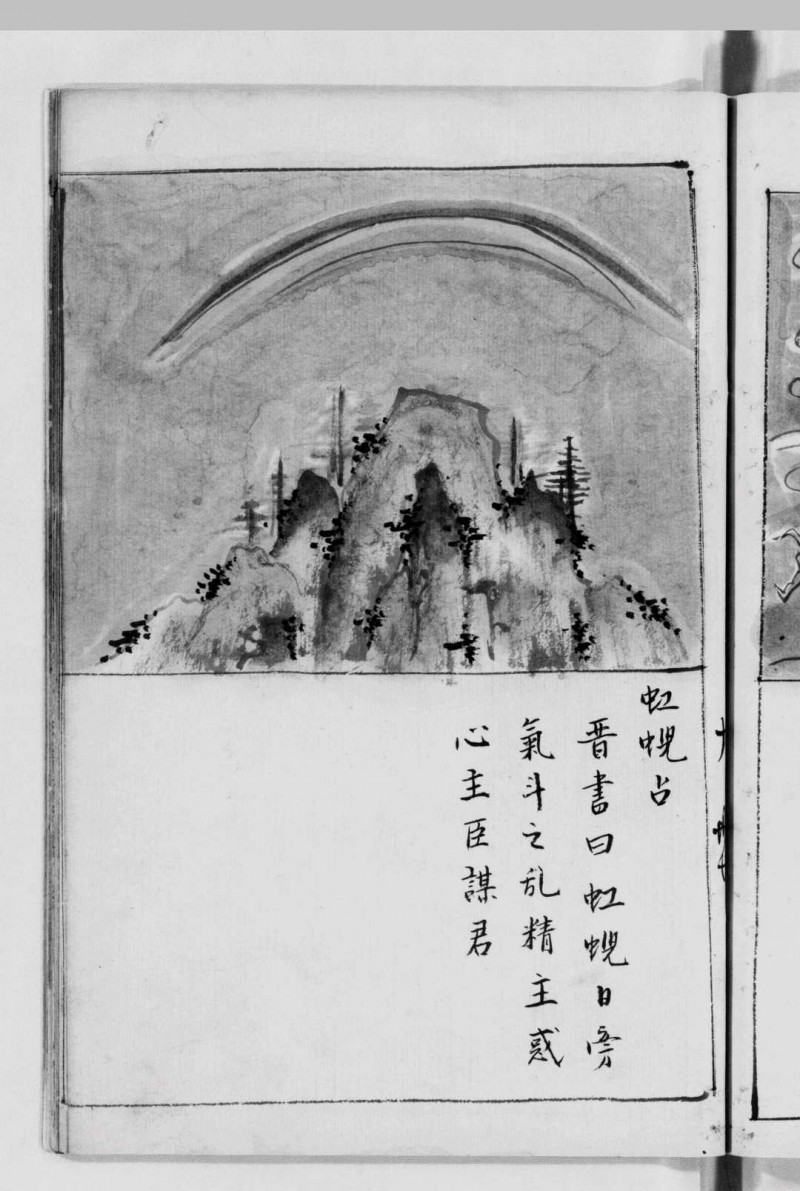 虹蜺占
晋書曰虹蜺日旁
氣斗之乱精主惑
心主臣謀君